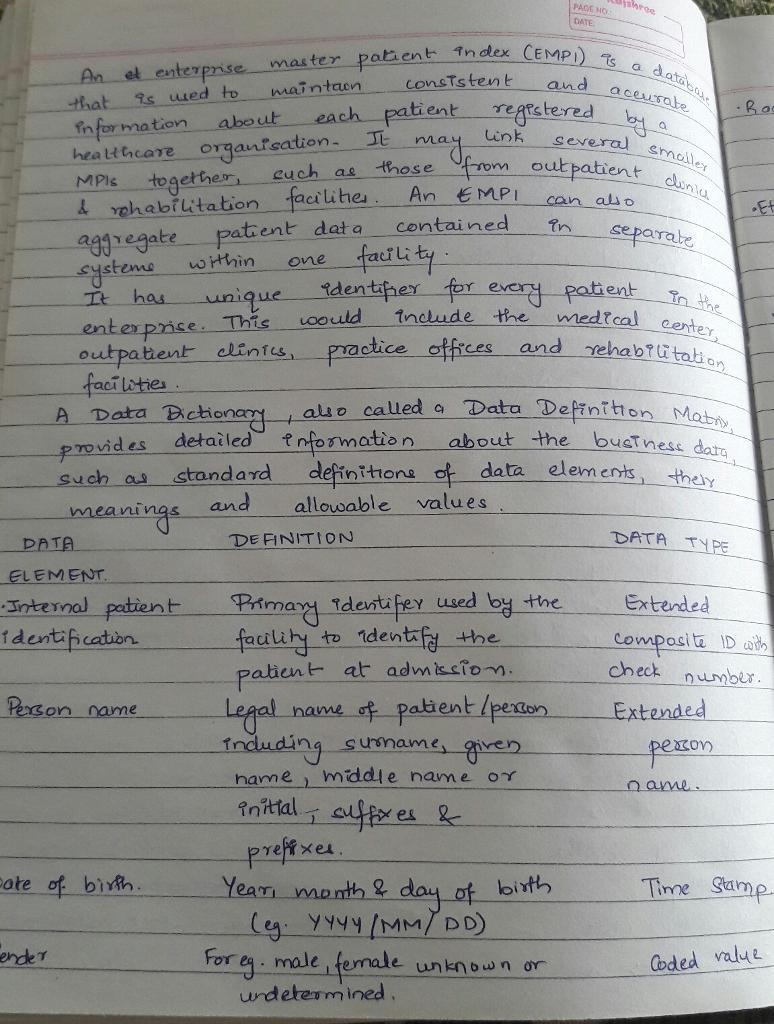 Rajshree
PAGE NO.:
DATE:
An et enterprise master patient index (EMPI) is a database
that is used to maintain consistent and accurate
information about each patient registered by a
healthcare organisation. It may link several smaller
MPIs together, such as those from outpatient clinics
& rehabilitation facilities. An EMPI can also
aggregate patient data contained in separate
systems within one facility.
It has unique identifier for every patient in the
enterprise. This would include the medical center,
outpatient clinics, practice offices and rehabilitation
facilities.
A Data Dictionary, also called a Data Definition Matrix,
provides detailed information about the business data,
such as standard definitions of data elements, their
meanings and allowable values.
DATA DEFINITION DATA TYPE
ELEMENT.
·Internal patient Primary identifer used by the Extended
identification facility to identify the composite ID with
patient at admission. check number.
Person name Legal name of patient/person Extended
including surname, given person
name, middle name or name.
initial, suffixes &
prefixes.
Date of birth. Year, month & day of birth Time Stamp
(eg. YYYY/MM/DD)
Gender For eg. male, female unknown or Coded value
undetermined.